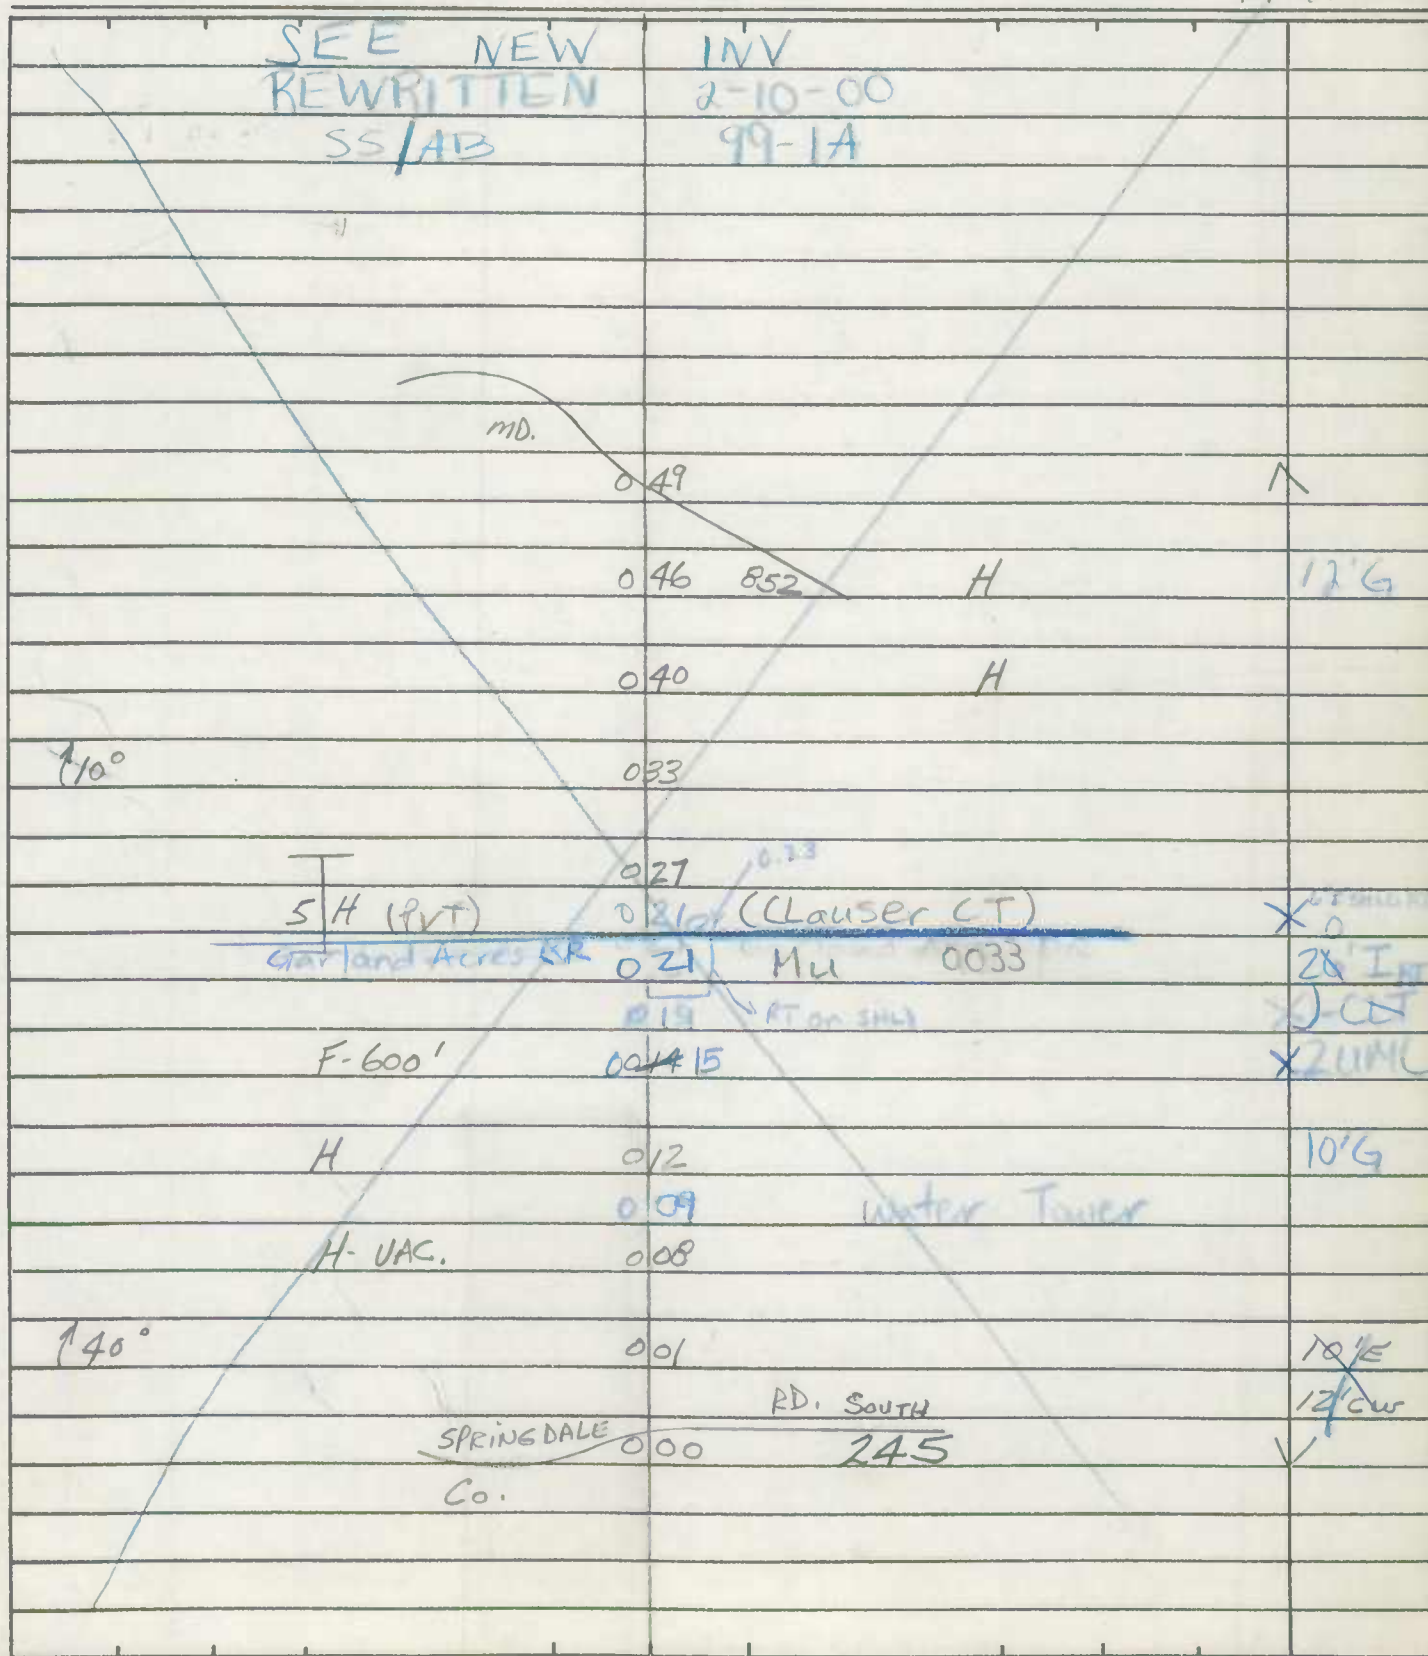 SEE NEW INV
REWRITTEN 2-10-00
SS/AB 99-1A
MD.
0 49
0 46 852 H 12'G
0 40 H
10° 0 33
0 27 0.23
5 H (PVT) 0 (CLauser CT)
Garland Acres 0 21 MU 0033
0 19 RT on SHLD
F-600' 0 15
H 0 12 10'G
0 09 Water Tower
H-VAC. 0 08
40° 0 01 10'E
RD. SOUTH 12'
SPRINGDALE 0 00 245
Co.